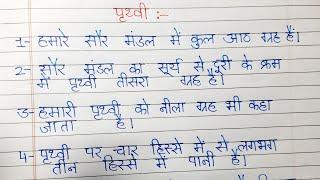 पृथ्वी :-
1- हमारे सौर मंडल में कुल आठ ग्रह हैं।
2- सौर मंडल का सूर्य से दूरी के क्रम
में पृथ्वी तीसरा ग्रह है।
3- हमारी पृथ्वी को नीला ग्रह भी कहा
जाता है।
4- पृथ्वी पर चार हिस्से में से लगभग
तीन हिस्से में पानी है।